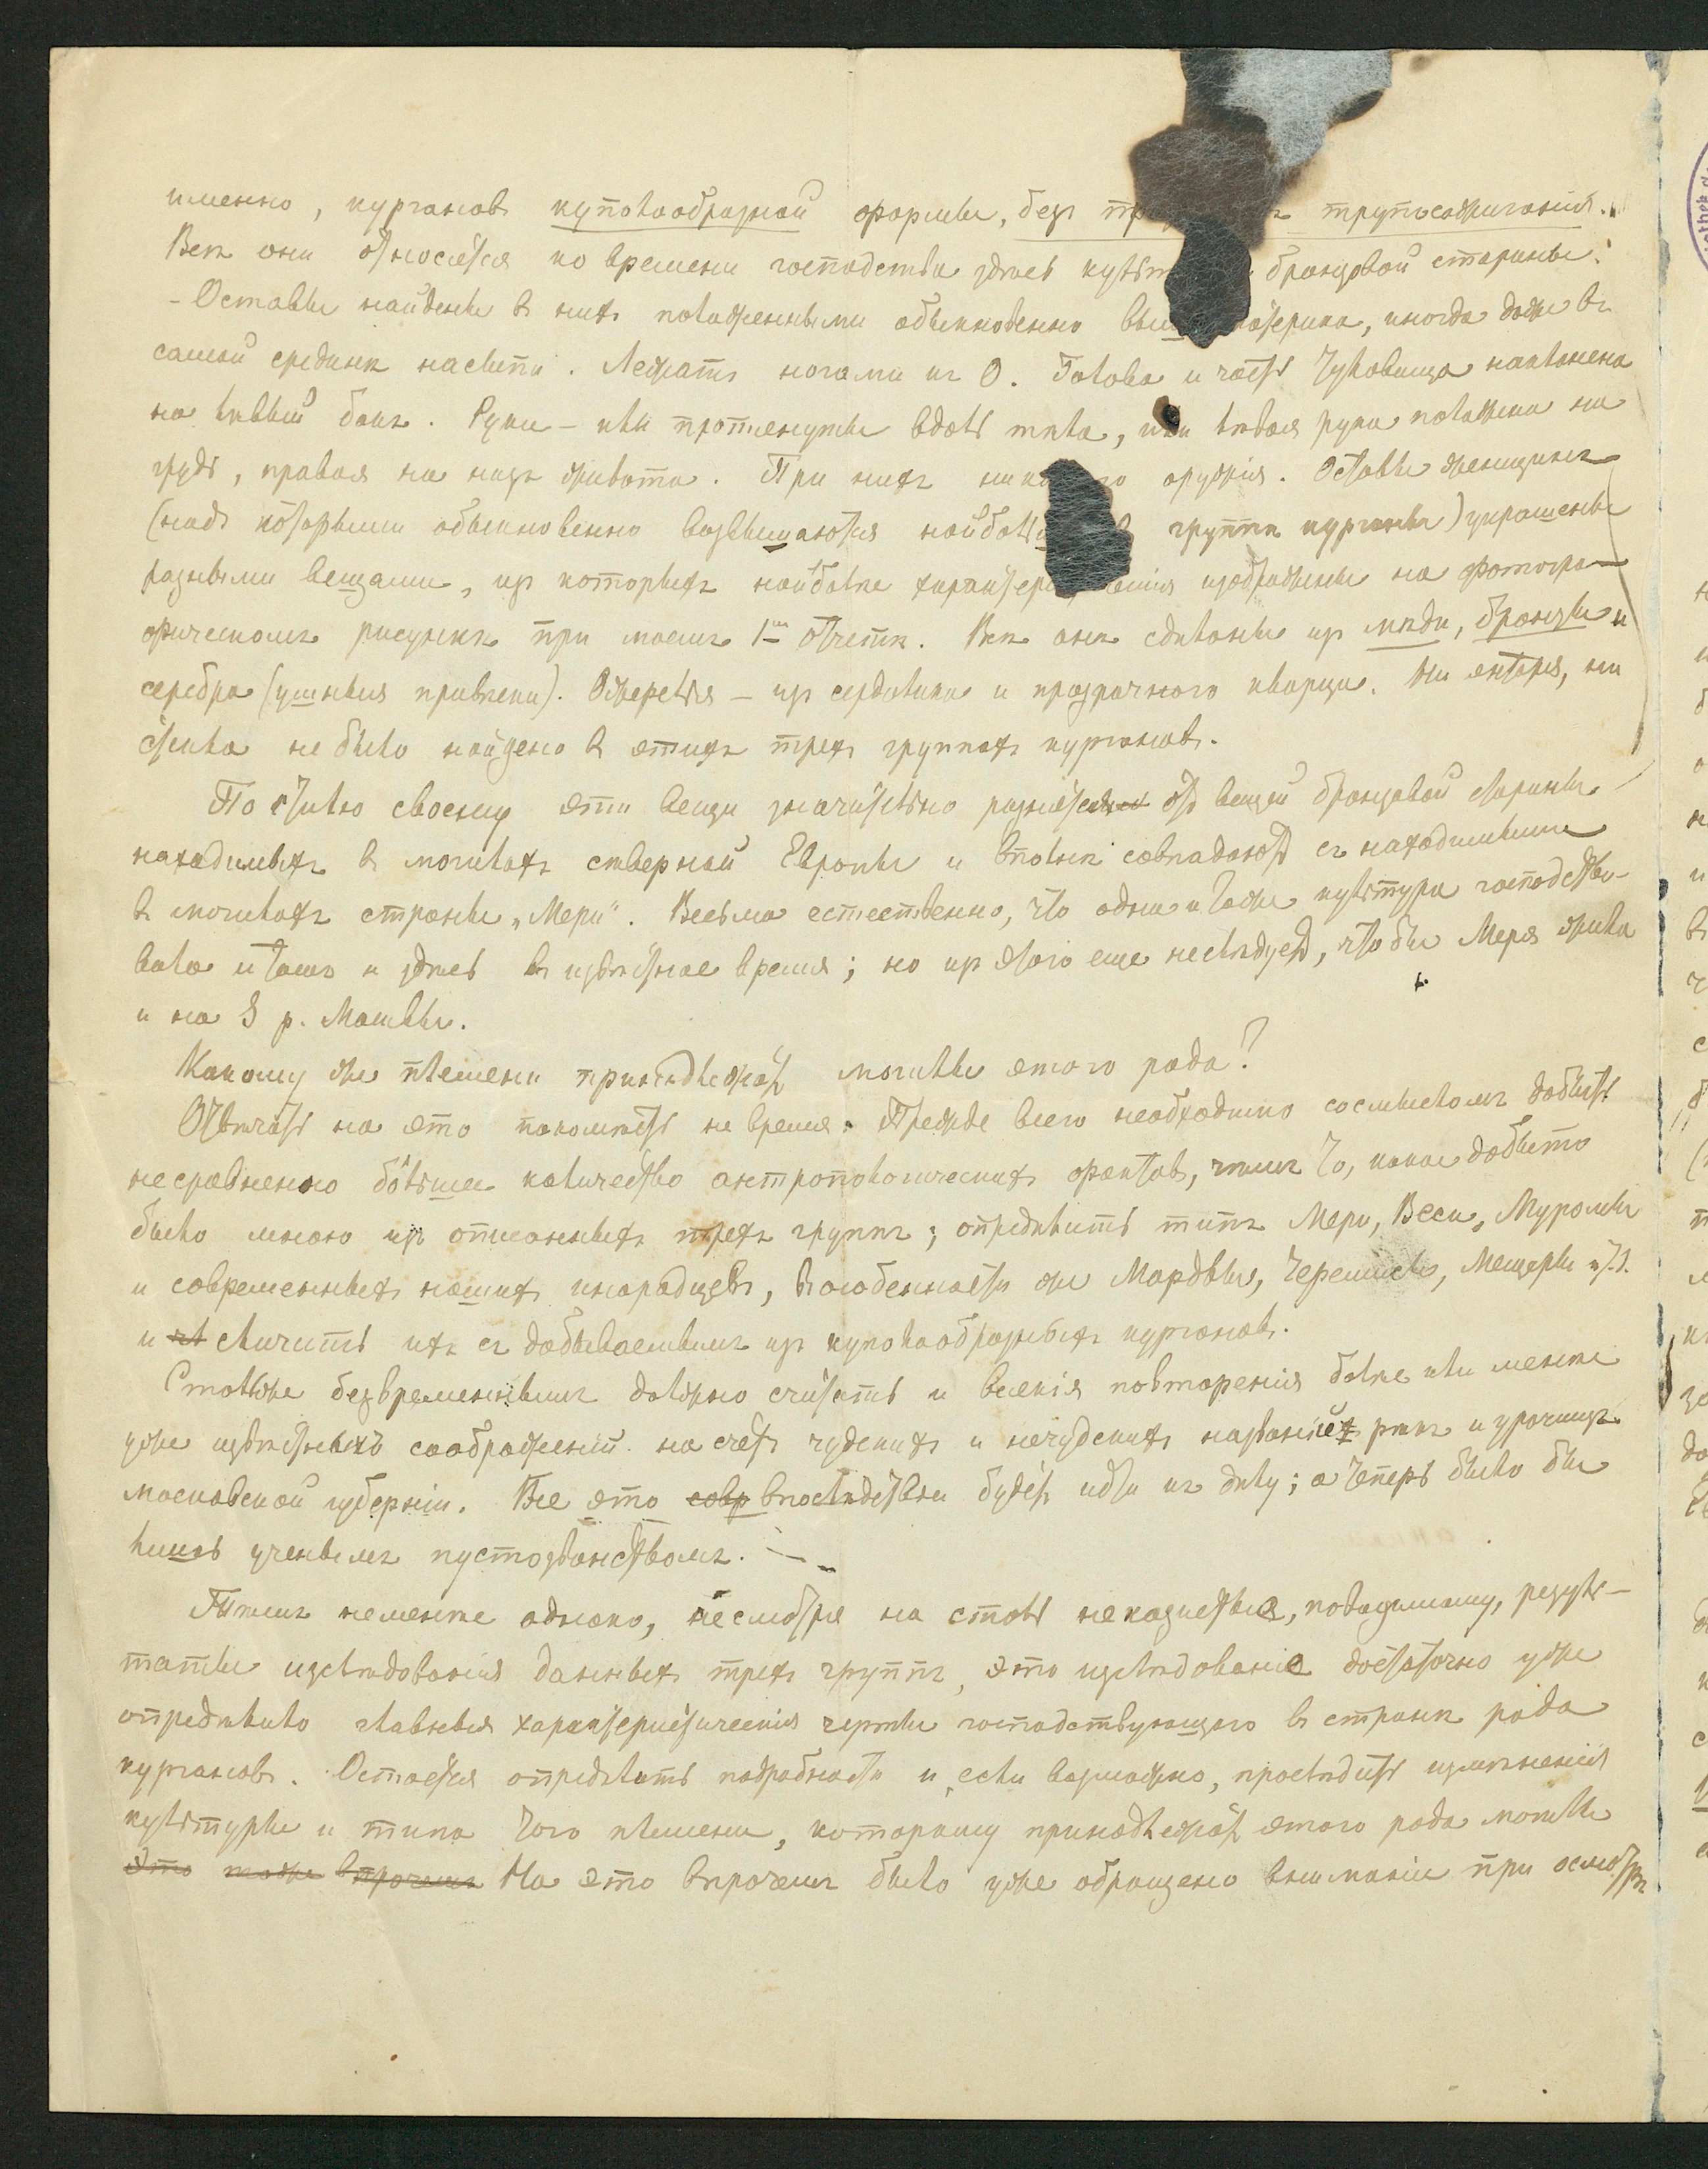 именно, курганов куполаобразной формы, без трупосожигания.
Все они относятся ко времени господства здесь бронзовой старины.
- Оставы найдены в них положенными обыкновенно материка, иногда даже въ
самой срединѣ насыпи. Лежатъ ногами къ О. Голова и часть туловища наклонена
на лѣвый бокъ. Руки - или протянуты вдоль тѣла, или лѣвая рука положена на
грудь, правая на низъ живота. При нихъ орудія. Оставы женщинъ
(надъ которыми обыкновенно возвышаются группѣ курганы) украшены
разными вещами, изъ которыхъ наиболѣе изображены на фотогра-
фическомъ рисункѣ при моемъ 1мъ отчетѣ. Всѣ онѣ сдѣланы изъ мѣди, бронзы и
серебра (ушныя привѣски). Ожерелья - изъ сердолика и прозрачнаго кварца. Ни янтаря, ни
стекла не было найдено в этихъ трехъ группахъ курганов.
По стилю своему эти вещи значительно разнятся отъ вещей бронзовой старины
находимыхъ в могилахъ сѣверной Европы и вполнѣ совпадаютъ съ находимыми
в могилахъ страны „Мери“. Весьма естественно, что одна и таже культура господство-
вала и тамъ и здѣсь въ извѣстное время; но изъ этого еще неслѣдуетъ, чтобы Меря жила
и на S р. Москвы.
Какому же племени принадлежатъ могилы этого рода?
Отвѣчать на это покамѣсть не время. Прежде всего необходимо со смысломъ добыть
несравненно большее количество антропологическихъ фактов, чѣмъ то, какое добыто
было мною изъ описанныхъ трехъ группъ; опредѣлить типъ Мери, Веси, Муромы
и современныхъ нашихъ инородцевъ, въ особенности же Мордвы, Черемисъ, Мещеры и т.д.
и сличить ихъ съ добываемымъ изъ куполаобразныхъ курганов.
Столь же безвременнымъ должно считать и всякія повторенія болѣе или менѣе
уже извѣстныхъ соображеній на счетъ чудскихъ и нечудскихъ названій рѣкъ и урочищъ
московской губерніи. Все это впослѣдствіи будетъ идти къ дѣлу; а теперь было бы
лишь ученымъ пустозвонствомъ.
Тѣмъ неменѣе однако, несмотря на столь неказистые, повидимому, резуль-
таты изслѣдованія данныхъ трехъ группъ, это изслѣдованіе достаточно уже
опредѣлило главныя характеристическія черты господствующаго въ странѣ рода
курганов. Остается опредѣлить подробности и, если возможно, прослѣдить измѣненія
культуры и типа того племени, которому принадлежатъ этого рода могилы
Это также впрочемъ На это впрочемъ было уже обращено вниманіе при осмотрѣ